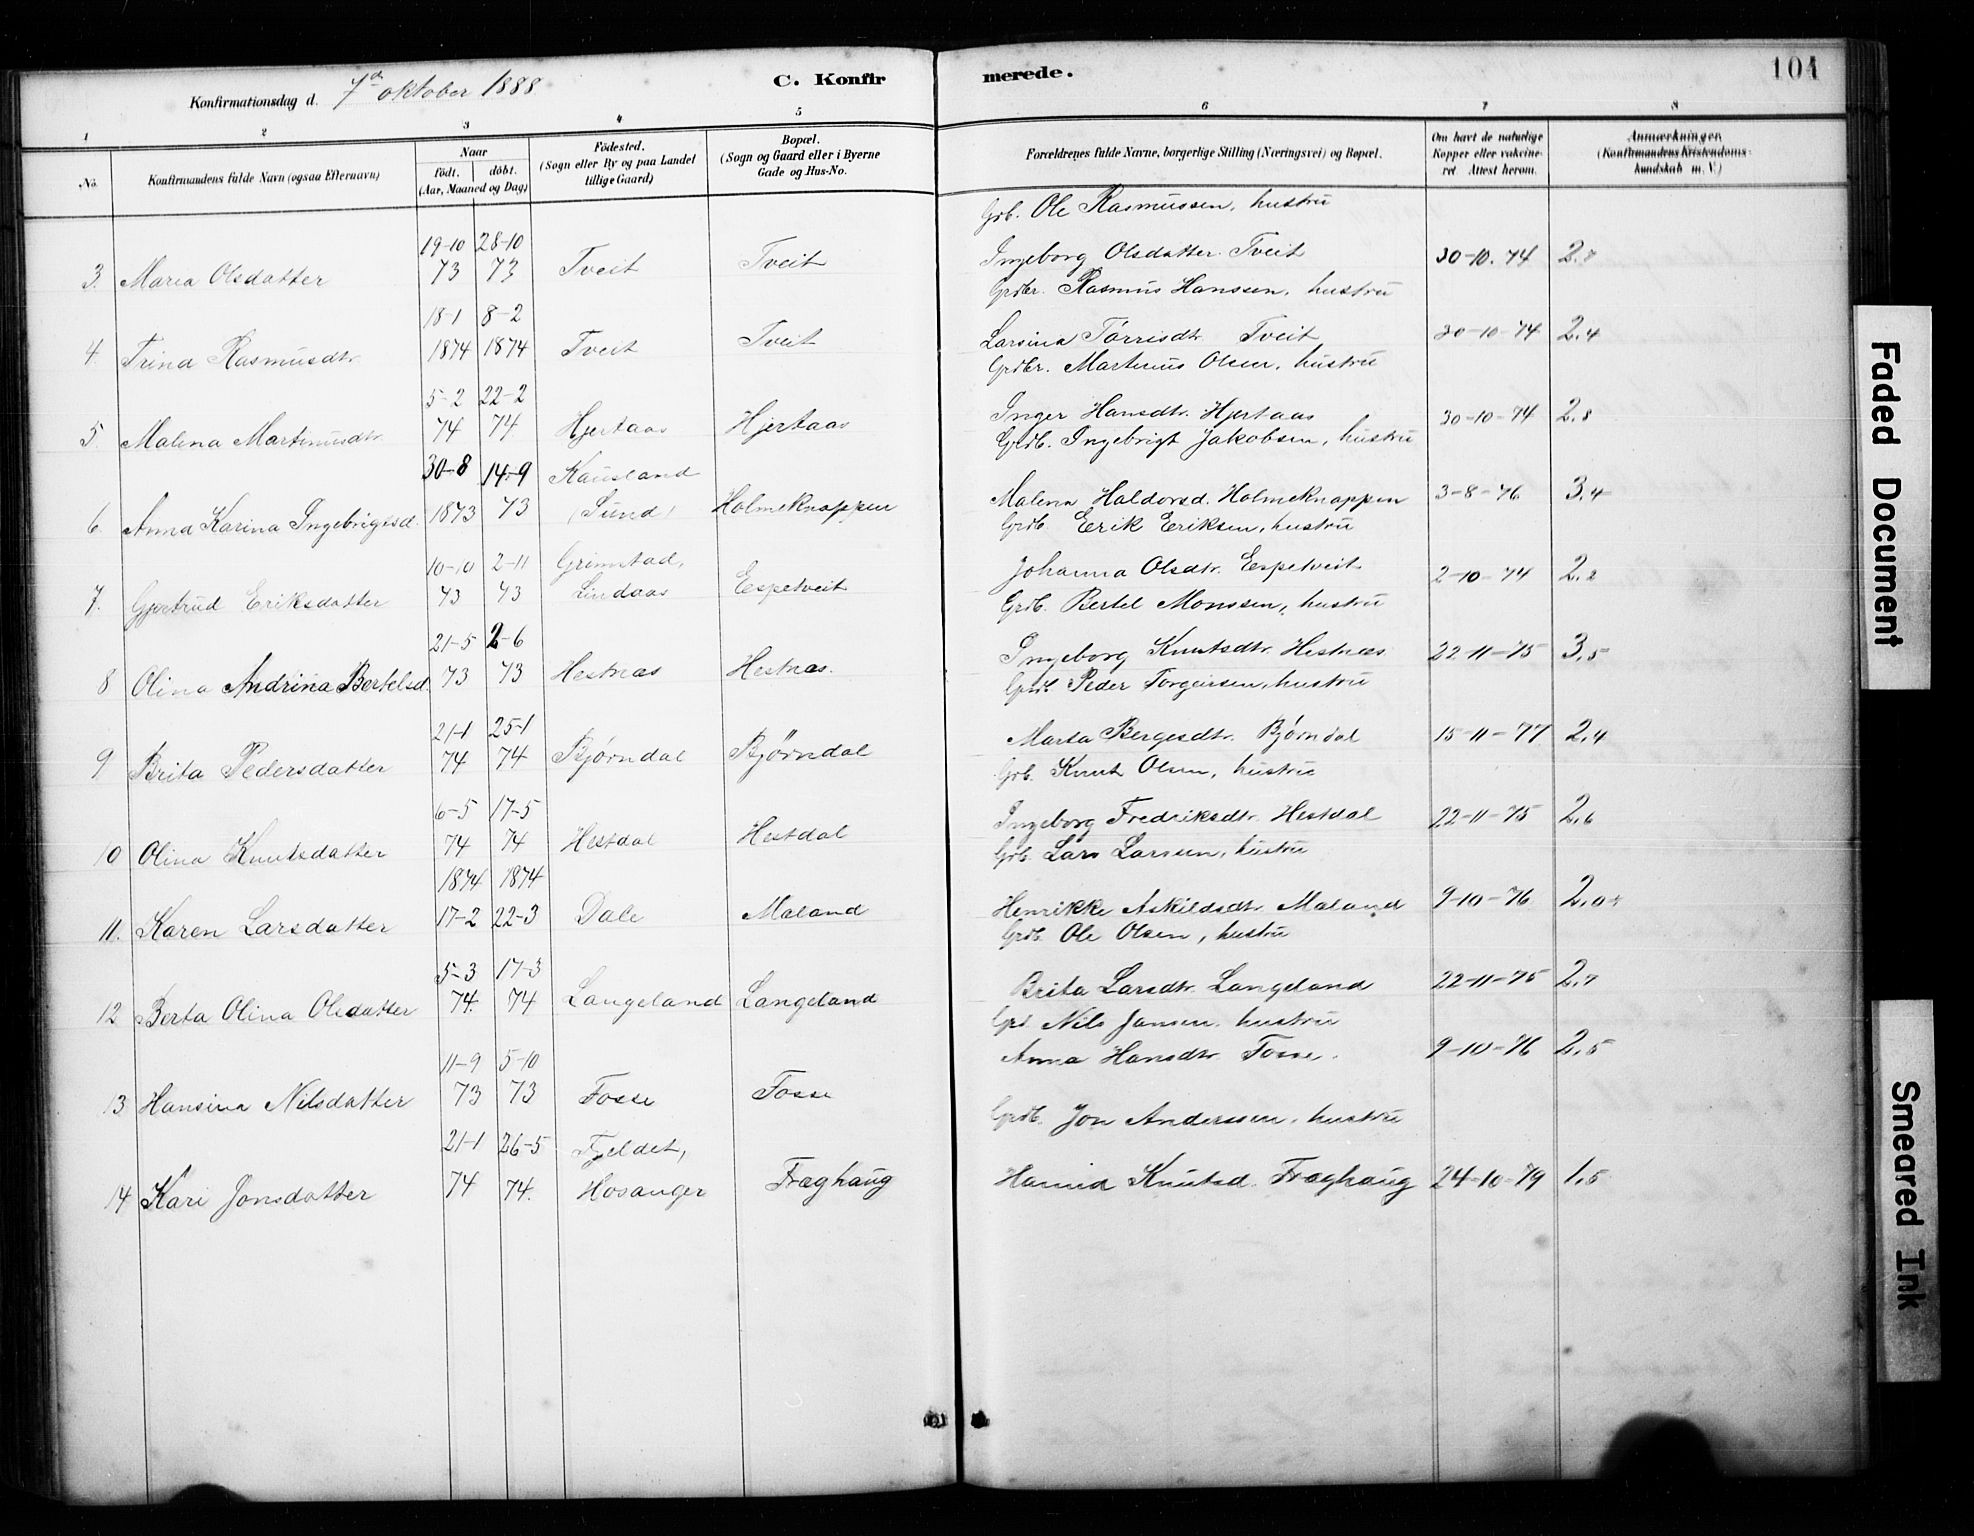 104
Konfirmationsdag d. 7de oktober 1888
C. Konfirmerede.
1 2 3 4 5 6 7 8
No.
Konfirmandens fulde Navn (ogsaa Efternavn)
Naar
födt. döbt.
(Aar, Maaned og Dag)
Födested.
(Sogn eller By og paa Landet
tillige Gaard)
Bopæl.
(Sogn og Gaard eller i Byerne
Gade og Hus-No.
Forældrenes fulde Navne, borgerlige Stilling (Næringsvei) og Bopæl.
Om havt de naturlige
Kopper eller vakcine-
ret. Attest herom.
Anmærkninger
(Konfirmandens Kristendoms-
kundskab m. V.)
Grb. Ole Rasmussen, hustru
19-10 28-10
3. Maria Olsdatter 73 73 Tveit Tveit Ingeborg Olsdatter Tveit 30-10-74 2.7
Grdbr. Rasmus Hanssen, hustru
18-1 8-2
4. Trina Rasmusdtr. 1874 1874 Tveit Tveit Larsina Tórrisdtr. Tveit 30-10-74 2.4
Grdbr. Martinus Olsen, hustru
5-2 22-2
5. Malena Martinusdtr. 74 74 Hjertaas Hjertaas Inger Hansdtr. Hjertaas 30-10-74 2.8
Grdb. Ingebrigt Jakobsen, hustru
30-8 14-9 Kausland
6. Anna Karina Ingebrigtsd. 1873 73 (Sund) Holmeknappen Malena Haldorsd. Holmeknappen 3-8-76 3.4
Grdb. Eerik Eriksen, hustru
10-10 2-11 Grimstad,
7. Gjertrud Eriksdatter 73 73 Lindaas Espetveit Johanna Olsdtr. Espetveit 2-10-74 2.2
Grdb. Bertel Monssen, hustru
21-5 2-6
8 Olina Andrina Bertelsd. 73 73 Hestnæs Hestnæs. Ingeborg Knutsdtr. Hestnæs 22-11-75 3.5
Grdb. Peder Torgeirsen, hustru
21-1 25-1
9 Brita Pedersdatter 74 74 Bjórndal Bjørndal Marta Bergesdtr. Bjórndal 15-11-77 2.4
Grb. Knut Olsen, hustru
6-5 17-5
10 Olina Knutsdatter 74 74 Hestdal Hestdal Ingeborg Fredriksdtr. Hestdal 22-11-75 2.6
Grb. Lars Larssen, hustru
1874 1874
11. Karen Larsdatter 17-2 22-3 Dale Maland Henrikke Askildsdtr. Maland 9-10-76 2.0
Grdb. Ole Olsen, hustru
5-3 17-3
12 Berta Olina Olsdatter 74. 74 Langeland Langeland Brita Larsdtr. Langeland 22-11-75 2.7
Grd Nils Jansen, hustru
11-9 5-10
13 Hansina Nilsdatter 73 73 Fosse Fosse Anna Hansdtr. Fosse. 9-10-76 2.5
Grdb. Jon Anderssen, hustru
21-1 26-5 Fjeldet,
14 Kari Jonsdatter 74 74. Hosanger Fræghaug Knutsd. Fræghaug 24-10-79 1.5
Faded Document
Smeared Ink